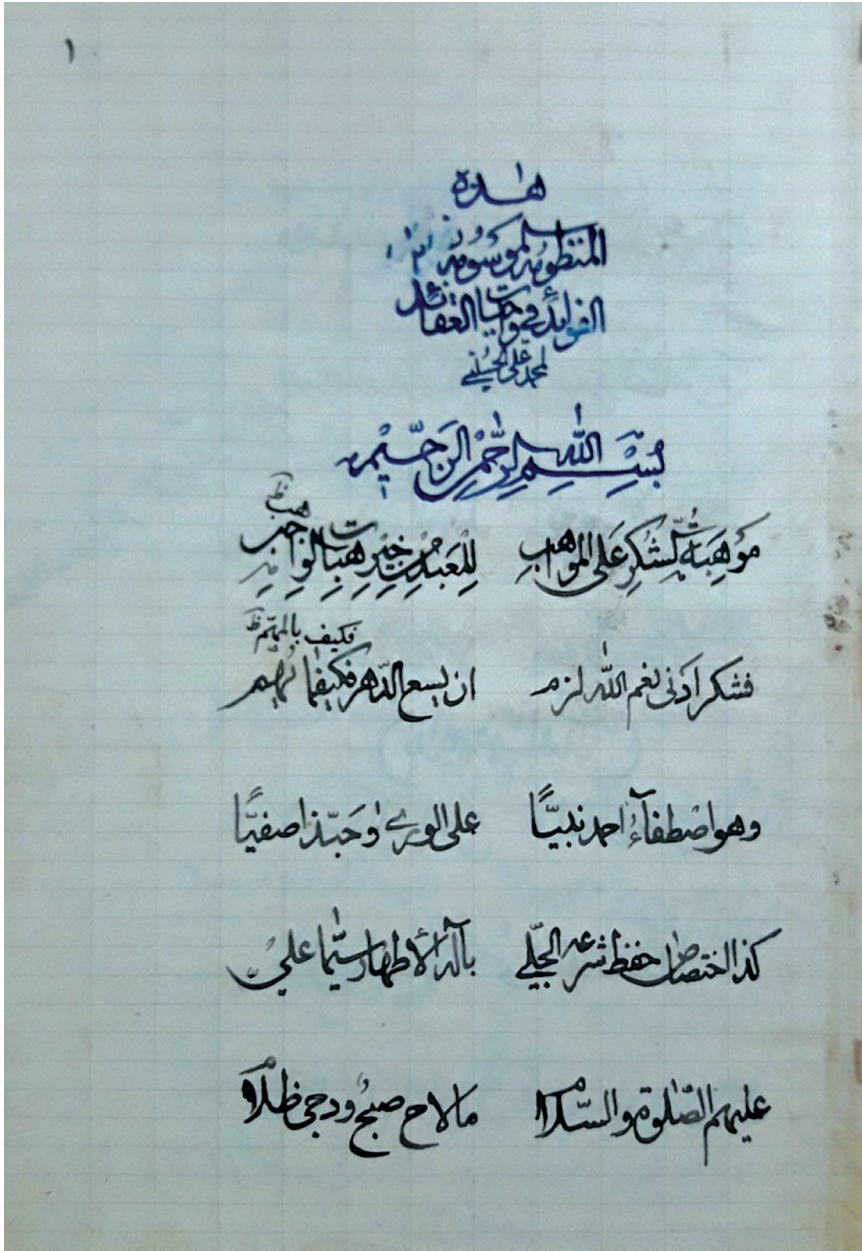 ١
هذه
المنظومة الموسومة
الفوائد في واجبات العقائد
لمحمد علي الحسيني
بِسْمِ اللّٰهِ الرَّحْمٰنِ الرَّحِيْمِ
هب ظ
مَوْهِبَةُ الشُّكرِ عَلى المواهِبِ لِلعَبدِ مِن خَيرِ هِباتِ الواجِبِ
فكيف بالمهتم ظ
فشكر ادنى نعم الله لزم ان يسع الدّهر فكيفما
وهو اصْطفآءُ احمد نبيًّا على الورى وحَبّذا صفيًّا
كذا اختصاص حفظ شرعه الجَلّي بآله الأطهار سيّما عليّ
عليهم الصّلوة والسّلام ما لاح صبحٌ ودجى ظلام